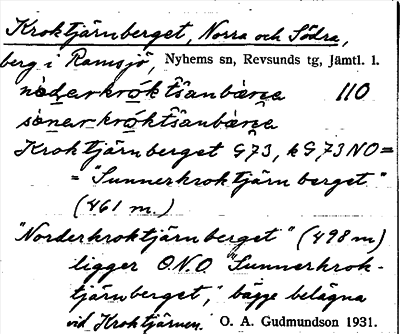 Kroktjärnberget, Norra och Södra,
berg i Ramsjö, Nyhems sn, Revsunds tg, Jämtl. l.
110
Kroktjärnberget G 73, k G 73 NO =
= "Sunnerkroktjärnberget"
(461 m.)
"Norderkroktjärnberget" (498 m)
ligger O.N.O. "Sunnerkrok-
tjärnberget," bägge belägna
vid Kroktjärnen. O. A. Gudmundson 1931.